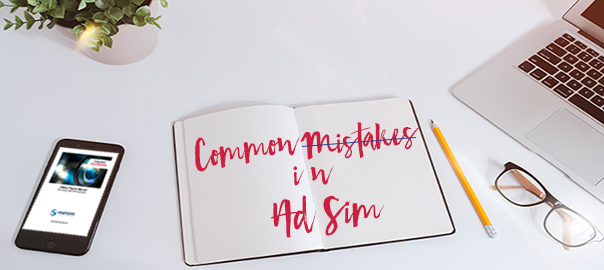 Common Mistakes
in
Ad Sim